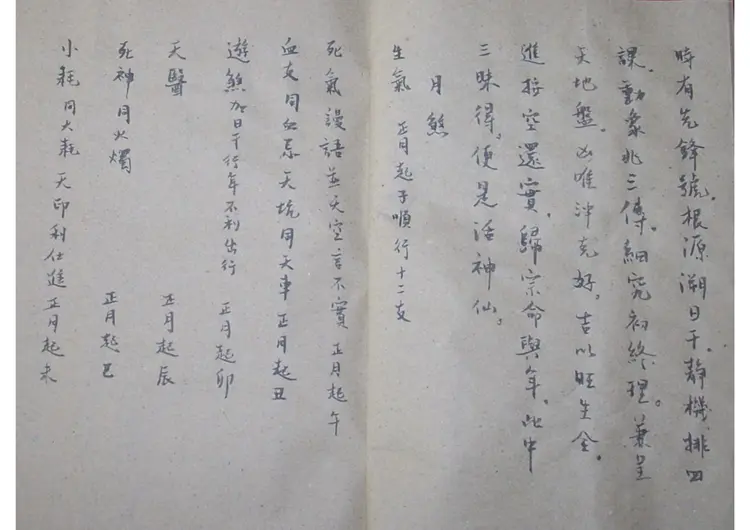 時有先鋒號。根源溯日干。靜機排四
課。動象兆三傳。細究初終理。兼呈
天地盤。凶唯沖克好。吉以旺生全。
進接空還實。歸宗命與年。此中
三昧得。便是活神仙。
月煞
生氣 正月起子順行十二支
死氣謾語並天空言不實 正月起午
血支同血忌天坑同天車 正月起丑
遊煞加日干行年不利出行 正月起卯
天醫 正月起辰
死神同火燭 正月起巳
小耗同大耗 天印利仕進 正月起未